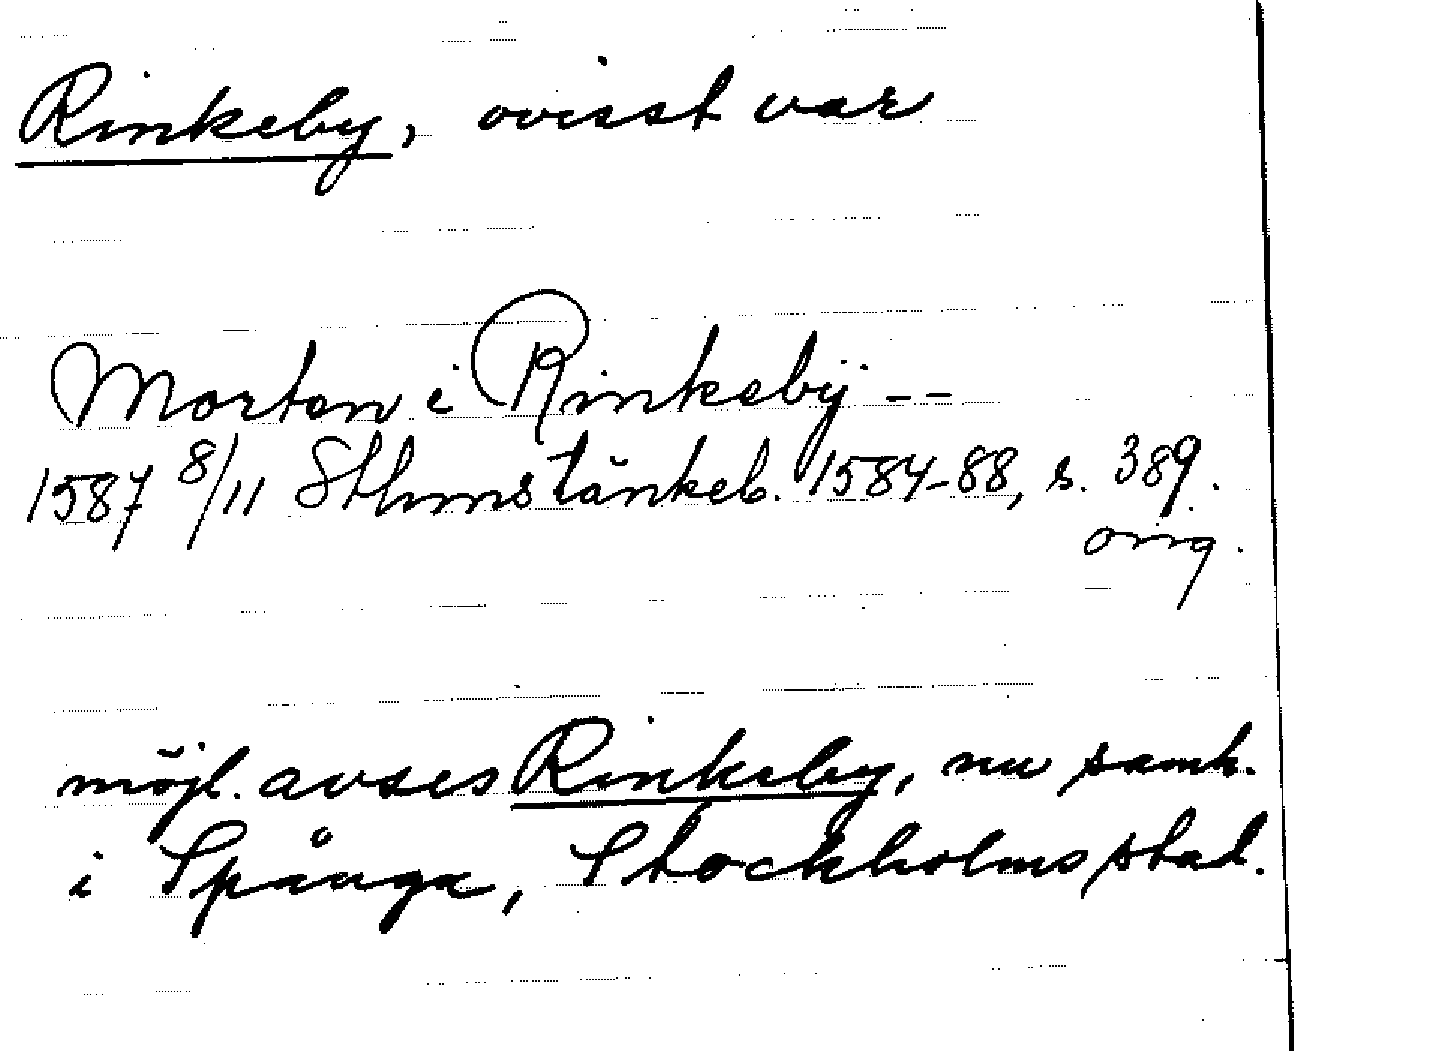 Rinkeby, ovisst var
Morten i Rinkebÿ --
1587 8/11 Sthmstänkeb. 1584-88, s. 389.
orig.
möjl. avses Rinkeby, nu samh.
i Spånga, Stockholms stad.